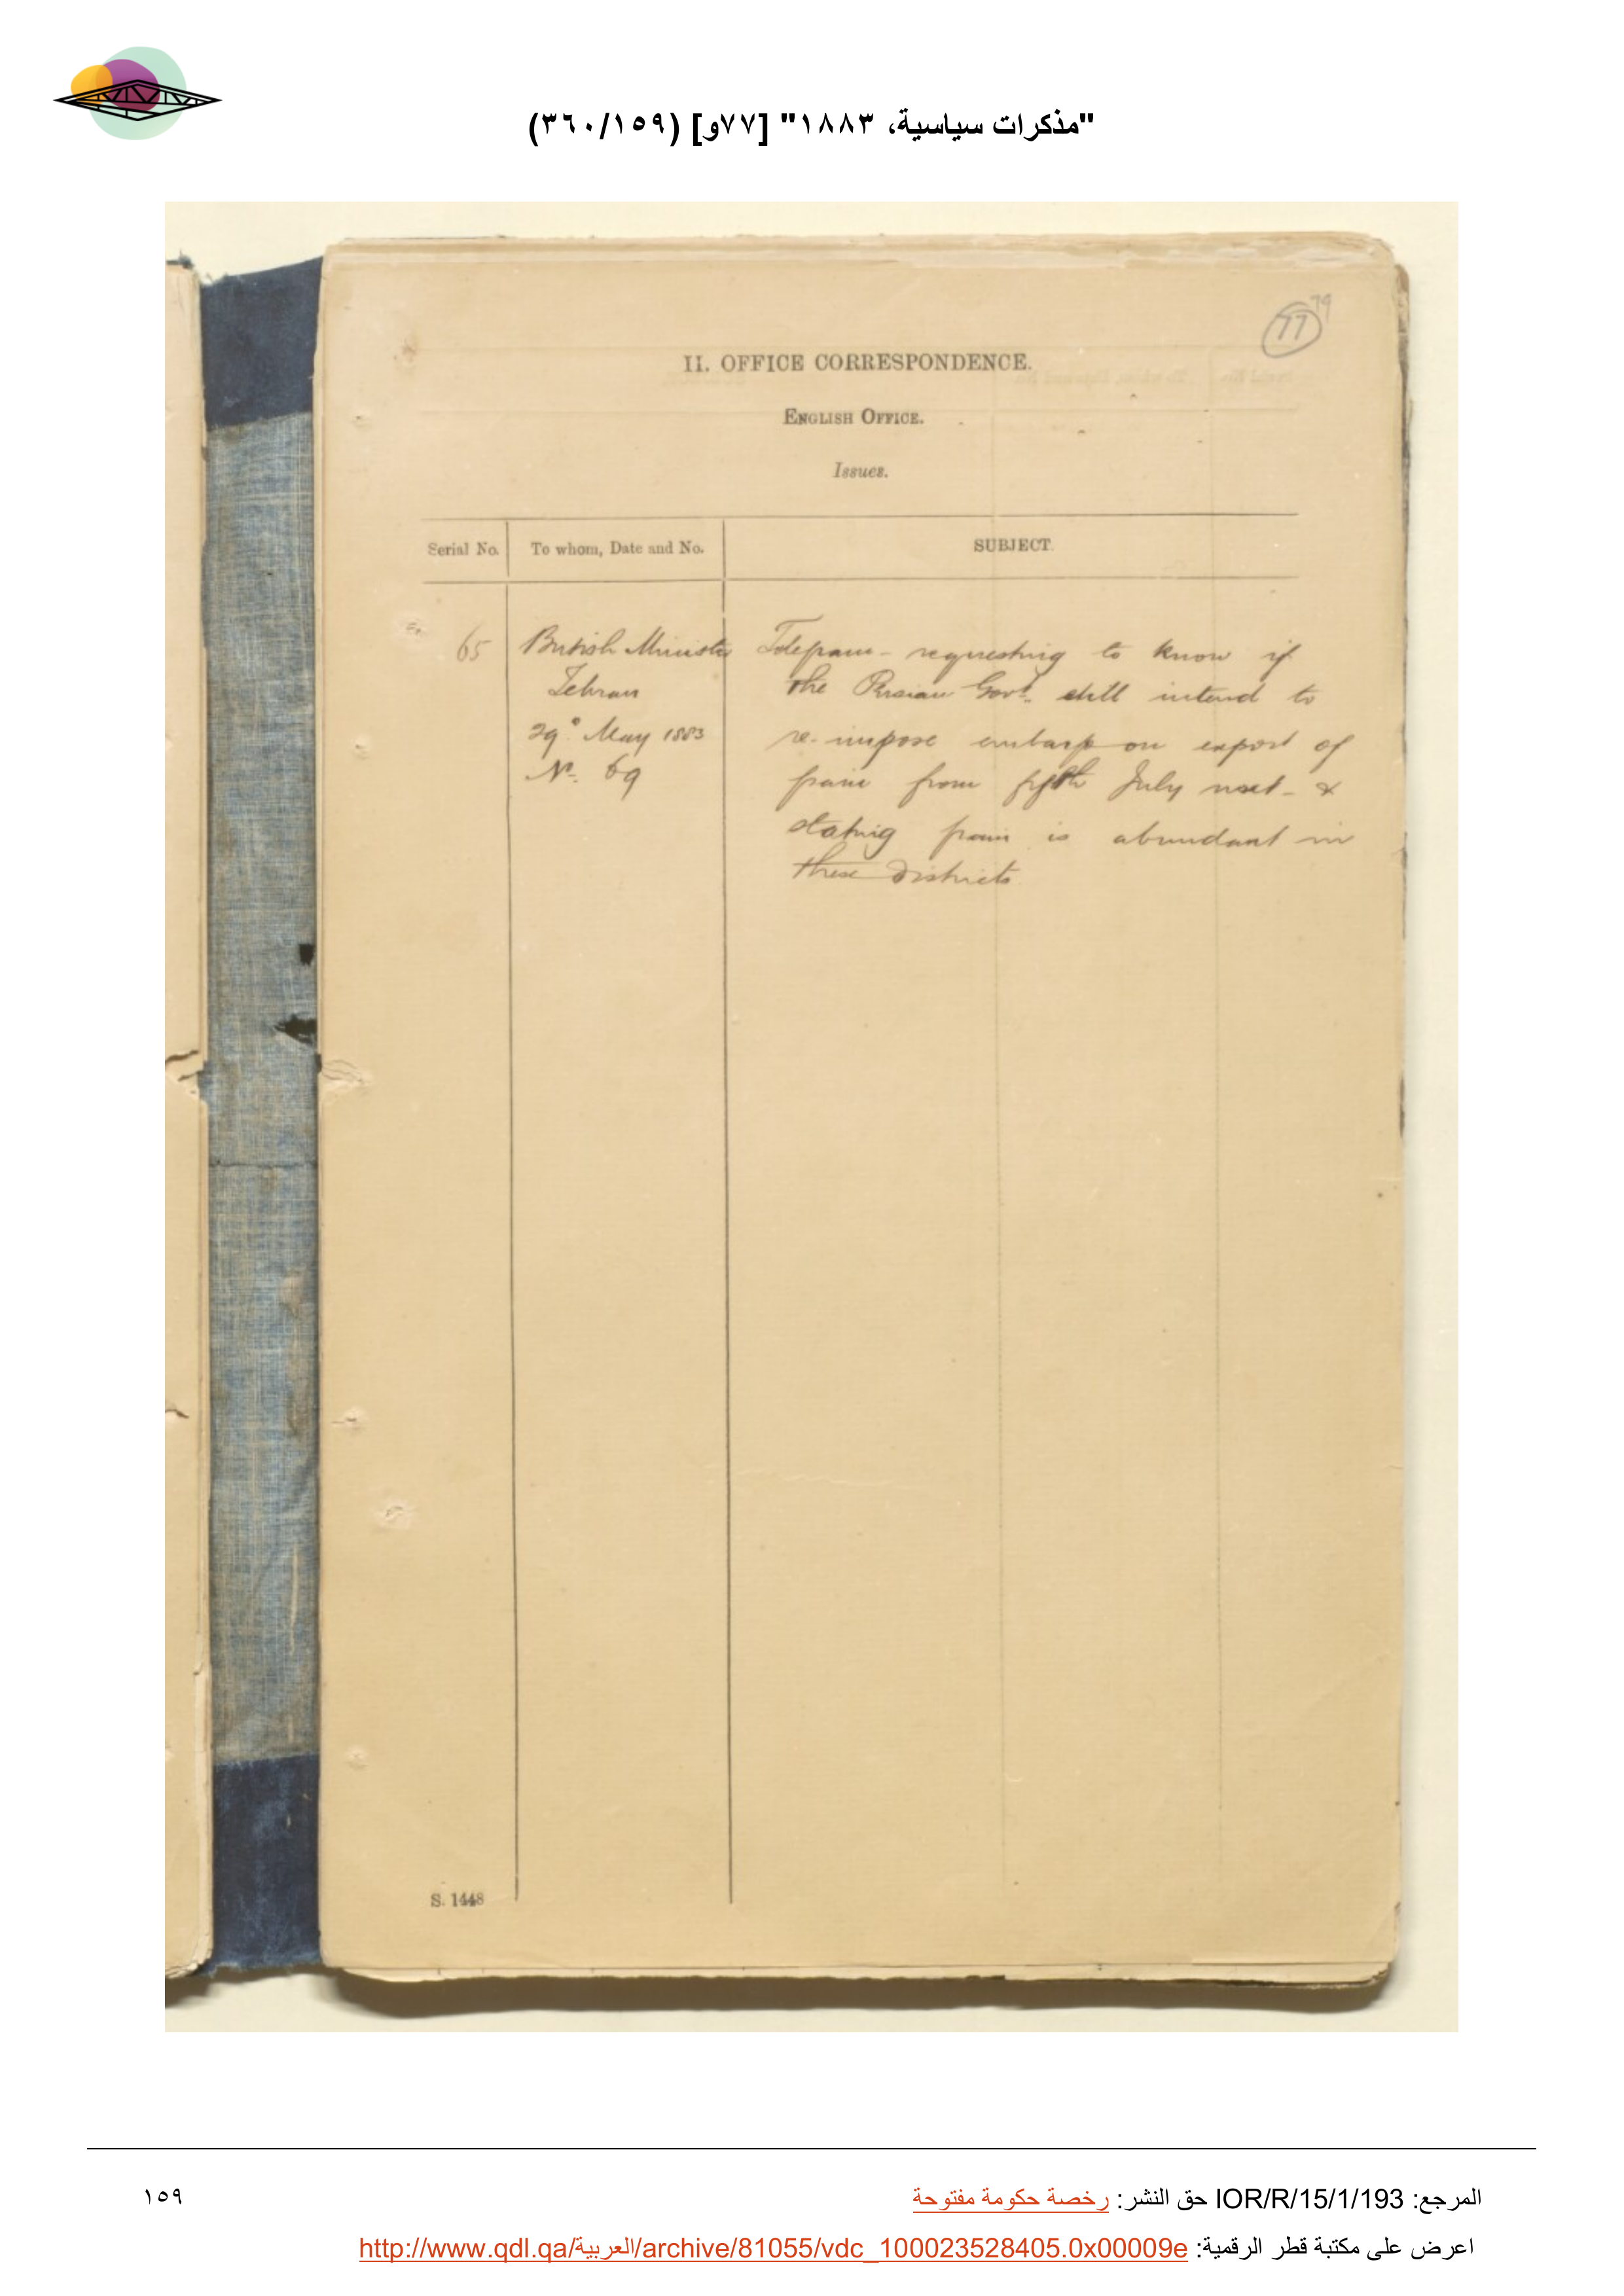 "مذكرات سياسية، ١٨٨٣" [٧٧و] (٣٦٠/١٥٩)
79
77
II. OFFICE CORRESPONDENCE.
ENGLISH OFFICE.
Issues.
Serial No. To whom, Date and No. SUBJECT.
65 British Minister Telegram - requesting to know if
Tehran the Persian Govt. still intend to
29 May 1883 re-impose embargo on export of
No. 69 grain from fifth July next - &
stating grain is abundant in
these districts
S. 1448
المرجع: IOR/R/15/1/193 حق النشر: رخصة حكومة مفتوحة
١٥٩
اعرض على مكتبة قطر الرقمية: http://www.qdl.qa/العربية/archive/81055/vdc_100023528405.0x00009e